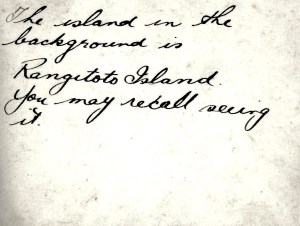 The island in the
background is
Rangitoto Island.
You may recall seeing
it.